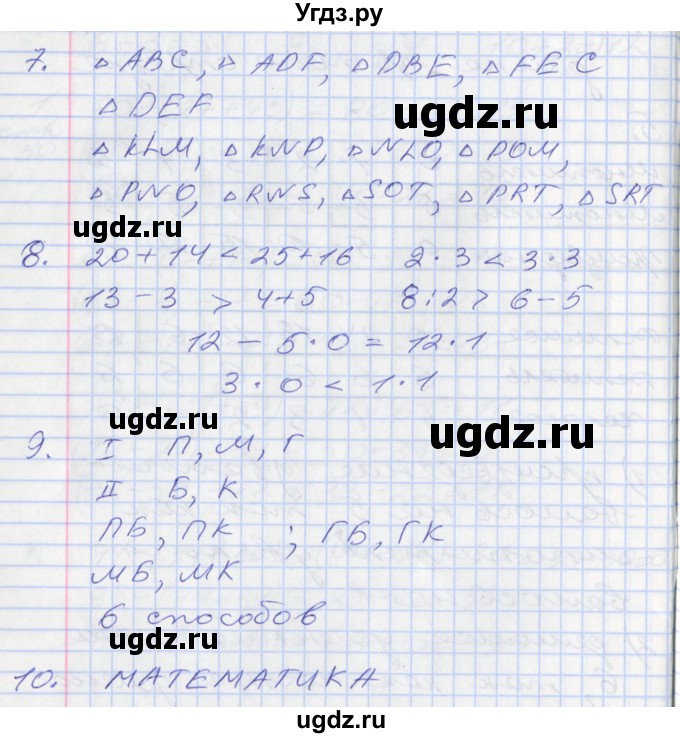 Угдз.ру
7. △ABC, △ADF, △DBE, △FEC
△DEF
ugdz.ru
△KLM, △KNP, △NLO, △POM,
△PNO, △RNS, △SOT, △PRT, △SRT
ugdz.ru
8. 20+14<25+16 2·3<3·3
13-3 > 4+5 8:2> 6-5
12-5·0=12·1
3·0<1·1
ugdz.ru
ugdz.ru
9. I П, М, Г
II Б, К
ПБ, ПК ; ГБ, ГК
МБ, МК
6 способов
ugdz.ru
10. МАТЕМАТИКА
ugdz.ru